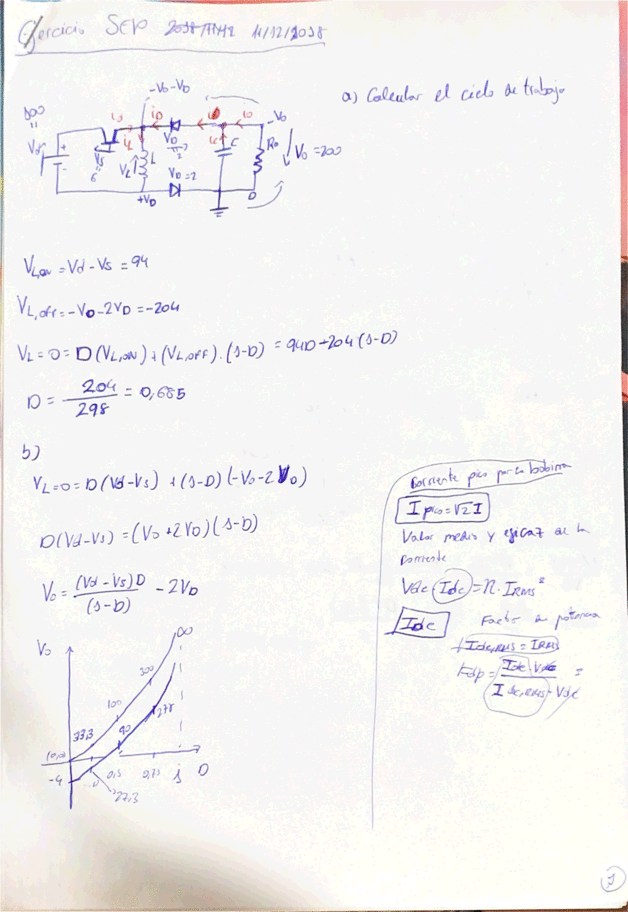 Ejercicio SEP 11/12/2018
a) Calcular el ciclo de trabajo
-Vo-VD
100
Vd
is
iD
iL
ic
io
-Vo
VD=2
VD=2
Vs
6
VL
L
C
Ro
Vo=200
+VD
0
VL,ON = Vd - Vs = 94
VL,OFF = -Vo - 2VD = -204
VL = 0 = D(VL,ON) + (VL,OFF).(1-D) = 94D - 204(1-D)
D = 204/298 = 0,685
b)
VL = 0 = D(Vd-Vs) + (1-D)(-Vo-2VD)
D(Vd-Vs) = (Vo+2VD)(1-D)
Vo = (Vd-Vs)D/(1-D) - 2VD
Vo
∞
300
100
278
33,3
90
(0,0)
-4
0,5
0,75
1
D
27,3
Corriente pico por la bobina
I pico = √2 I
Valor medio y eficaz de la
corriente
Vdc·Idc = n·IRMS²
Idc
Factor de potencia
Idc,RMS = IRMS
Fdp = Idc·Vdc / Idc,RMS·Vdc =
1